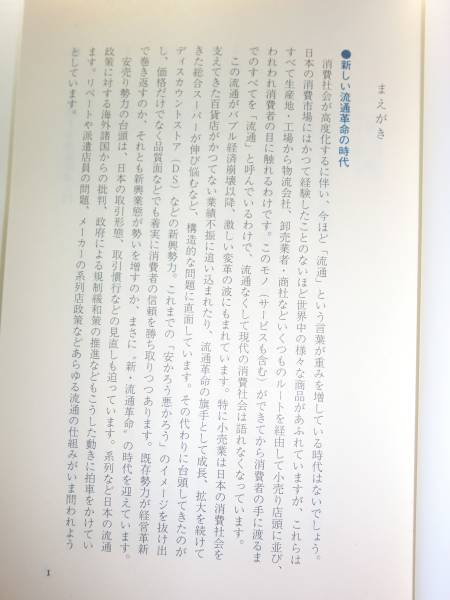 まえがき
●新しい流通革命の時代
消費社会が高度化するに伴い、今ほど「流通」という言葉が重みを増している時代はないでしょう。
日本の消費市場にはかつて経験したことのないほど世界中の様々な商品があふれていますが、これらは
すべて生産地・工場から物流会社、卸売業者・商社などいくつものルートを経由して小売り店頭に並び、
われわれ消費者の目に触れるわけです。このモノ（サービスも含む）ができてから消費者の手に渡るま
でのすべてを「流通」と呼んでいるわけで、流通なくして現代の消費社会は語れなくなっています。
この流通がバブル経済崩壊以降、激しい変革の波にもまれています。特に小売業は日本の消費社会を
支えてきた百貨店がかつてない業績不振に追い込まれたり、流通革命の旗手として成長、拡大を続けて
きた総合スーパーが伸び悩むなど、構造的な問題に直面しています。その代わりに台頭してきたのが
ディスカウントストア（DS）などの新興勢力。これまでの「安かろう悪かろう」のイメージを抜け出
し、価格だけでなく品質面などでも着実に消費者の信頼を勝ち取りつつあります。既存勢力が経営革新
で巻き返すのか、それとも新興業態が勢いを増すのか、まさに〝新・流通革命〟の時代を迎えています。
安売り勢力の台頭は、日本の取引形態、取引慣行などの見直しも迫っています。系列など日本の流通
政策に対する海外諸国からの批判、政府による規制緩和策の推進などもこうした動きに拍車をかけてい
ます。リベートや派遣店員の問題、メーカーの系列店政策などあらゆる流通の仕組みがいま問われよう
としています。
1